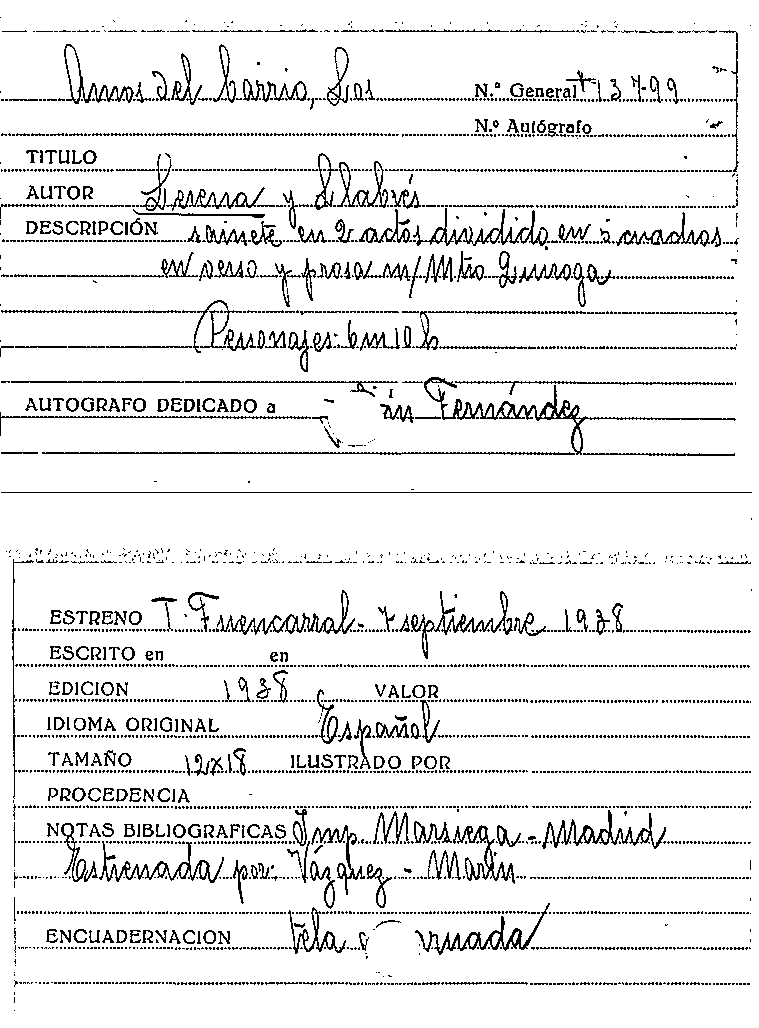 Amos del barrio, Los N.º General 13799
N.º Autógrafo
TITULO
AUTOR Lerena y Llabrés
DESCRIPCIÓN sainete en 2 actos dividido en 5 cuadros
en verso y prosa m/Mtro Quiroga
Personajes: 6 m 10 h
AUTOGRAFO DEDICADO a Fernández
ESTRENO T. Fuencarral - 7 septiembre 1938
ESCRITO en en
EDICION 1938 VALOR
IDIOMA ORIGINAL Español
TAMAÑO 12x18 ILUSTRADO POR
PROCEDENCIA
NOTAS BIBLIOGRAFICAS Imp. Marsiega - Madrid
Estrenada por: Vázquez - Marín
ENCUADERNACION tela